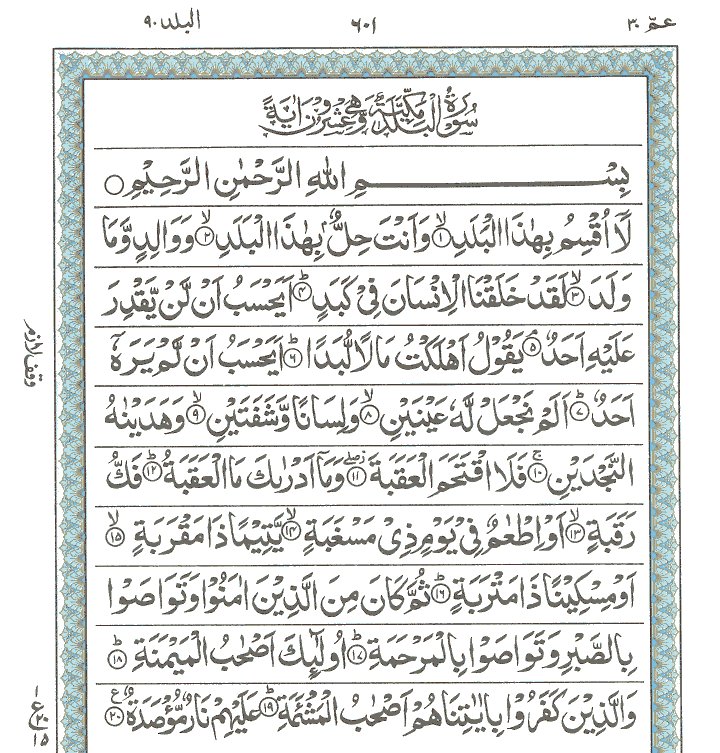 عمّ ٣٠ ٦٠١ البلد ٩٠
سُوْرَةُ الْبَلَدِ مَكِّيَّةٌ وَّهِىَ عِشْرُوْنَ اٰيَةً
بِسْمِ اللهِ الرَّحْمٰنِ الرَّحِيْمِ ○
لَاۤ اُقْسِمُ بِهٰذَا الْبَلَدِ ۙ﴿١﴾ وَاَنْتَ حِلٌّۢ بِهٰذَا الْبَلَدِ ۙ﴿٢﴾ وَوَالِدٍ وَّمَا
وَلَدَ ۙ﴿٣﴾ لَقَدْ خَلَقْنَا الْاِنْسَانَ فِىْ كَبَدٍ ؕ﴿٤﴾ اَيَحْسَبُ اَنْ لَّنْ يَّقْدِرَ
عَلَيْهِ اَحَدٌ ۘ﴿٥﴾ يَقُوْلُ اَهْلَكْتُ مَالًا لُّبَدًا ؕ﴿٦﴾ اَيَحْسَبُ اَنْ لَّمْ يَرَهٗۤ
اَحَدٌ ؕ﴿٧﴾ اَلَمْ نَجْعَلْ لَّهٗ عَيْنَيْنِ ۙ﴿٨﴾ وَلِسَانًا وَّشَفَتَيْنِ ۙ﴿٩﴾ وَهَدَيْنٰهُ
النَّجْدَيْنِ ۚ﴿١٠﴾ فَلَا اقْتَحَمَ الْعَقَبَةَ ۖ﴿١١﴾ وَمَاۤ اَدْرٰىكَ مَا الْعَقَبَةُ ؕ﴿١٢﴾ فَكُّ
رَقَبَةٍ ۙ﴿١٣﴾ اَوْ اِطْعٰمٌ فِىْ يَوْمٍ ذِىْ مَسْغَبَةٍ ۙ﴿١٤﴾ يَّتِيْمًا ذَا مَقْرَبَةٍ ۙ﴿١٥﴾
اَوْ مِسْكِيْنًا ذَا مَتْرَبَةٍ ؕ﴿١٦﴾ ثُمَّ كَانَ مِنَ الَّذِيْنَ اٰمَنُوْا وَتَوَاصَوْا
بِالصَّبْرِ وَتَوَاصَوْا بِالْمَرْحَمَةِ ؕ﴿١٧﴾ اُولٰٓئِكَ اَصْحٰبُ الْمَيْمَنَةِ ؕ﴿١٨﴾
وَالَّذِيْنَ كَفَرُوْا بِاٰيٰتِنَا هُمْ اَصْحٰبُ الْمَشْئَمَةِ ؕ﴿١٩﴾ عَلَيْهِمْ نَارٌ مُّؤْصَدَةٌ ﴿٢٠﴾ ع
وقف لازم
ع ٢٠ ١٥